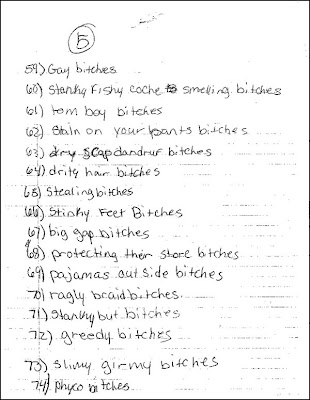 5
59) Gay bitches
60) Stanky Fishy coche smelling bitches
61) tom boy bitches
62) Stain on your pants bitches
63) dry scap dandruf bitches
64) drity hair bitches
65) Stealing bitches
66) Stinky Feet Bitches
67) big gap bitches
68) protecting their store bitches
69) pajamas out side bitches
70) ragly braid bitches
71) Stanky but bitches
72) greedy bitches
73) slimy girmy bitches
74) phyco bitches